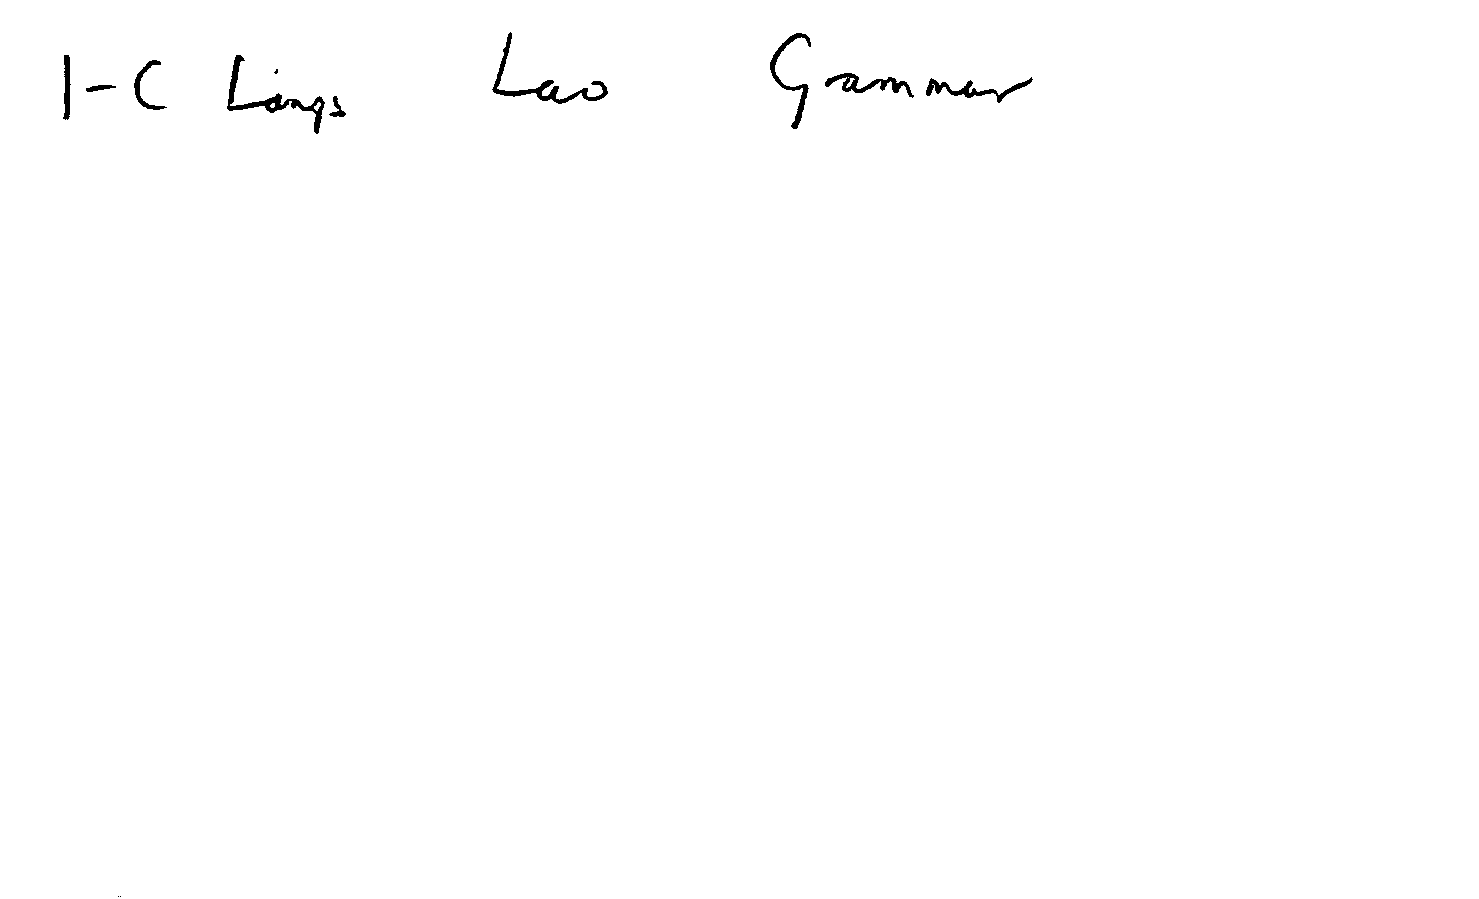 I-C Langs Lao Grammar